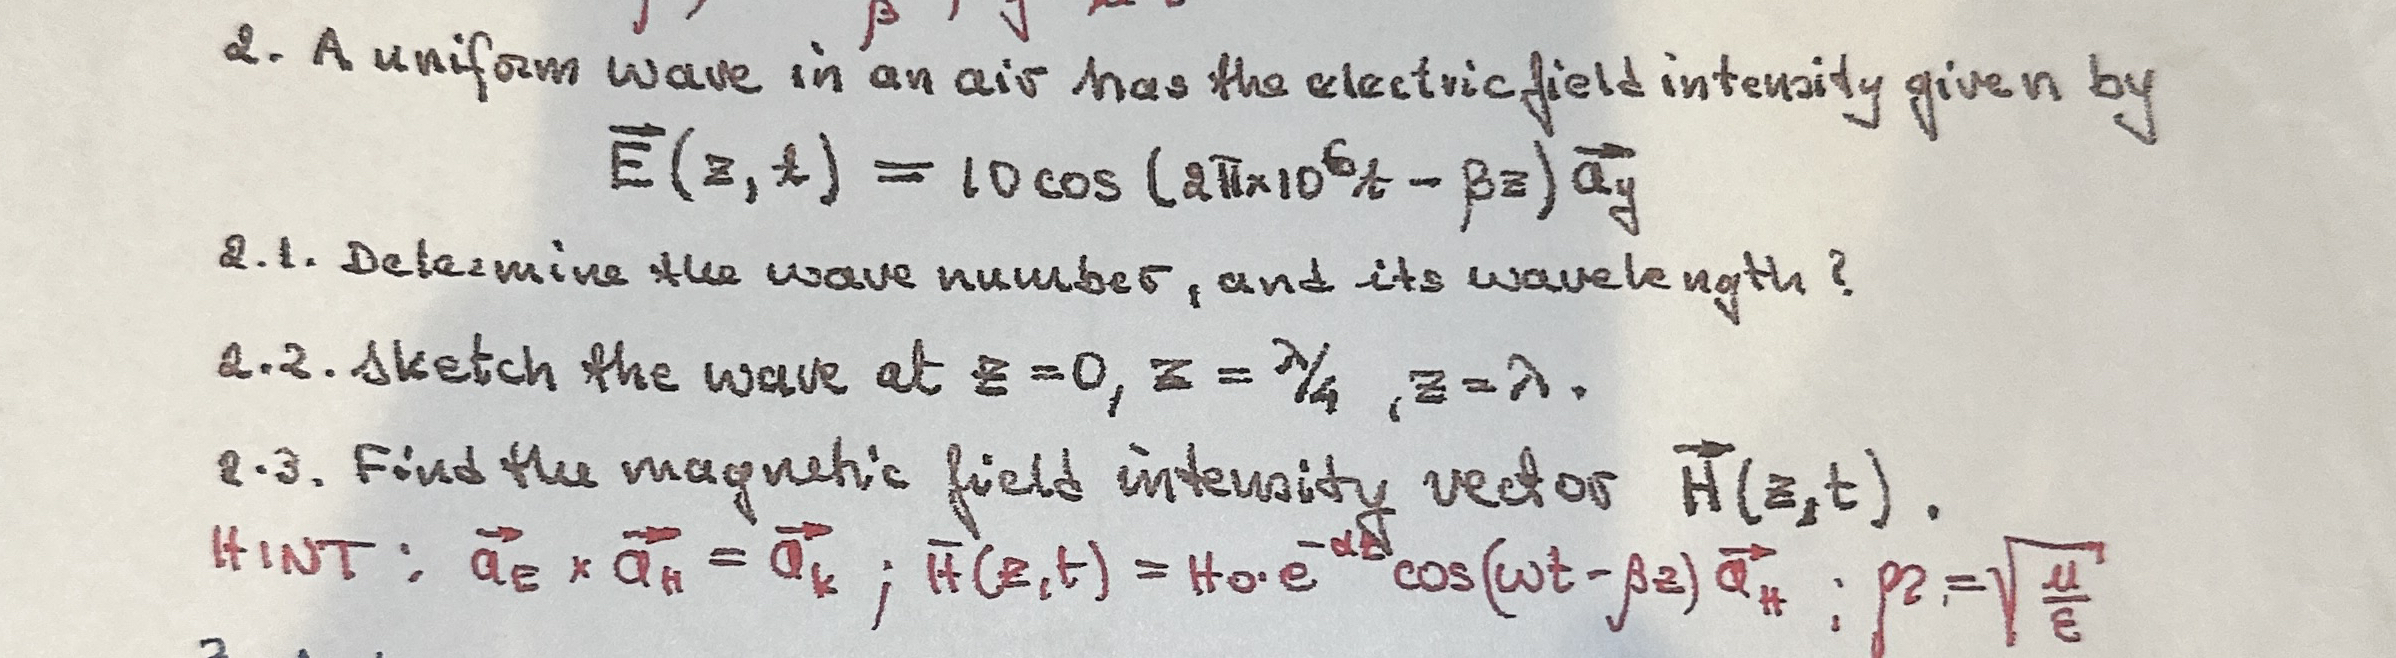 2. A uniform wave in an air has the electric field intensity given by
E⃗(z,t) = 10 cos (2π×10⁶t - βz) a⃗y
2.1. Determine the wave number, and its wavelength?
2.2. Sketch the wave at z=0, z = λ/4, z=λ.
2.3. Find the magnetic field intensity vector H⃗(z,t).
HINT: a⃗E × a⃗H = a⃗k ; H̄(z,t) = H₀·e^-αz cos(ωt-βz) a⃗H ; η = √μ/ε